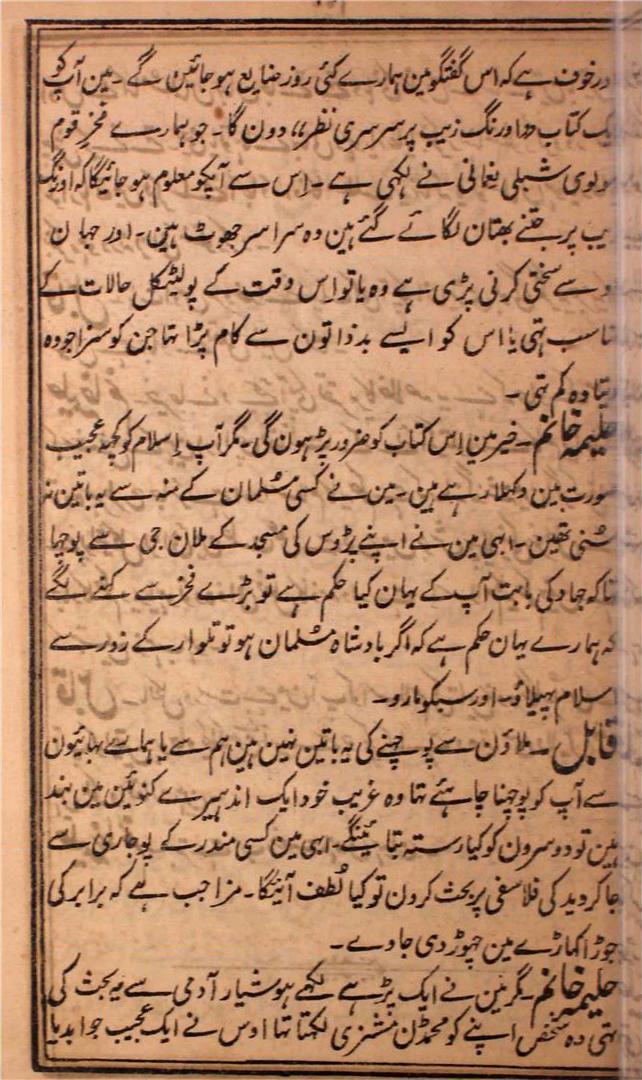 ور خوف ہے کہ اس گفتگو مین ہمارے کئی روز ضایع ہو جائین گے۔ مین آپ کو
یک کتاب ،،اورنگ زیب پر سرسری نظر،، دون گا۔ جو ہمارے فخر قوم
مولوی شبلی نعمانی نے لکھی ہے۔ اس سے آپکو معلوم ہو جائیگا کہ اورنگ
یب پر جتنے بھتان لگائے گئے ہین وہ سراسر جھوٹ ہین۔ اور جہان
سے سختی کرنی پڑی ہے وہ یا تو اس وقت کے پولیٹکل حالات کے
ناسب تہی یا اس کو ایسے بدذاتون سے کام پڑا تہا جن کو سزا جو وہ
یتا وہ کم تہی۔
حلیمہ خانم۔ خیر مین اس کتاب کو ضرور پڑہون گی۔ مگر آپ اِسلام کو کچہہ عجیب
صورت مین دکہلا رہے ہین۔ مین نے کسی مسُلمان کے منہ سے یہ باتین نہ
سُنی تھین۔ ابہی مین نے اپنے پڑوس کی مسجد کے ملان جی سے پوچہا
تاکہ جہاد کی بابت آپ کے یہان کیا حکم ہے تو بڑے فخر سے کہنے لگے
کہ ہمارے یہان حکم ہے کہ اگر بادشاہ مسُلمان ہو تو تلوار کے زور سے
اسلام پہیلاؤ۔ اور سبکو مارو۔
قابل۔ ملاؤن سے پوچہنے کی یہ باتین نہین ہین ہم سے یا ہمارے بہائیون
سے آپ کو پوچہنا چاہئے تہا وہ غریب خود ایک اندہیرے کنوئین مین بند
ہین تو دوسرون کو کیا رستہ بتائینگے۔ ابہی مین کسی مندر کے پوجاری سے
جا کر وید کی فلاسفی پر بحث کرون تو کیا لُطف آئیگا۔ مزا جب ہے کہ برابر کی
جوڑ اکہاڑے مین چہوڑ دی جاوے۔
حلیمہ خانم۔ مگر مین نے ایک پڑہے لکہے ہوشیار آدمی سے یہ بحث کی
تہی وہ شخص اپنے کو محمڈن مشنری لکہتا تہا اوس نے ایک عجیب جواب دیا